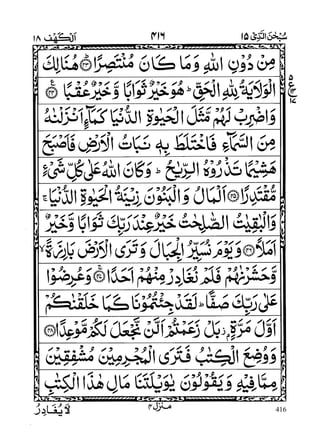 سُبْحٰنَ الَّذِىْ ١٥ ٤١٦ اَلْكَهْف ١٨
مِنْ دُوْنِ اللّٰهِ وَمَا كَانَ مُنْتَصِرًا ؕ‏﴿۴۳﴾ هُنَالِكَ
الْوَلَايَةُ لِلّٰهِ الْحَـقِّ‌ؕ هُوَ خَيْرٌ ثَوَابًا وَّخَيْرٌ عُقْبًا ﴿۴۴﴾
وَاضْرِبْ لَهُمْ مَّثَلَ الْحَيٰوةِ الدُّنْيَا كَمَآءٍ اَنْزَلْنٰهُ
مِنَ السَّمَآءِ فَاخْتَلَطَ بِهٖ نَبَاتُ الْاَرْضِ فَاَصْبَحَ
هَشِيْمًا تَذْرُوْهُ الرِّيٰحُ‌ؕ وَكَانَ اللّٰهُ عَلٰى كُلِّ شَىْءٍ
مُّقْتَدِرًا ﴿۴۵﴾ اَلْمَالُ وَالْبَنُوْنَ زِيْنَةُ الْحَيٰوةِ الدُّنْيَا‌ۚ
وَالْبٰقِيٰتُ الصّٰلِحٰتُ خَيْرٌ عِنْدَ رَبِّكَ ثَوَابًا وَّخَيْرٌ
اَمَلًا ﴿۴۶﴾ وَيَوْمَ نُسَيِّرُ الْجِبَالَ وَتَرَى الْاَرْضَ بَارِزَةً ۙ
وَّحَشَرْنٰهُمْ فَلَمْ نُغَادِرْ مِنْهُمْ اَحَدًا‌ۚ ﴿۴۷﴾ وَعُرِضُوْا
عَلٰى رَبِّكَ صَفًّاؕ لَقَدْ جِئْتُمُوْنَا كَمَا خَلَقْنٰكُمْ
اَوَّلَ مَرَّةٍۢ‌ بَلْ زَعَمْتُمْ اَلَّنْ نَّجْعَلَ لَكُمْ مَّوْعِدًا ﴿۴۸﴾
وَوُضِعَ الْكِتٰبُ فَتَرَى الْمُجْرِمِيْنَ مُشْفِقِيْنَ
مِمَّا فِيْهِ وَيَقُوْلُوْنَ يٰوَيْلَتَنَا مَالِ هٰذَا الْكِتٰبِ
لَا يُغَادِرُ منزل ٤ 416